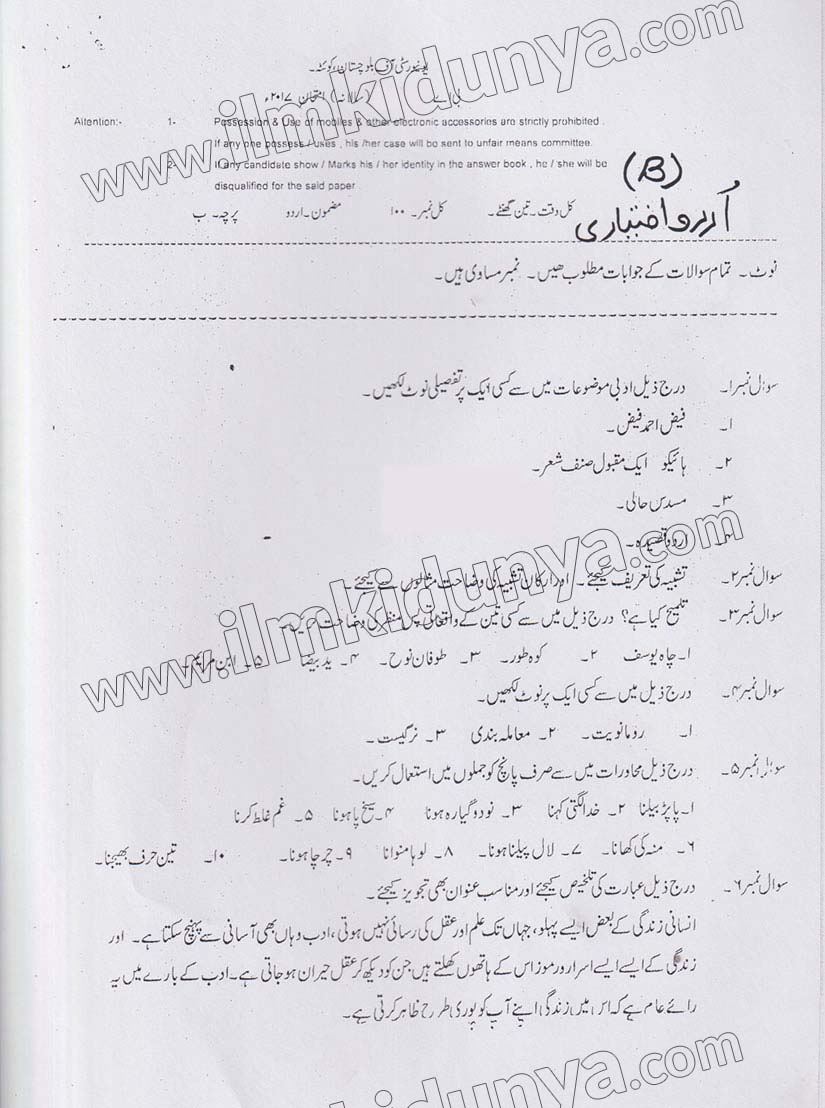 یونیورسٹی آف بلوچستان، کوئٹہ۔
بی اے (سالانہ) امتحان ۲۰۱۷ء
Attention:- 1- Possession & Use of mobiles & other electronic accessories are strictly prohibited .
If any one possess / uses , his /her case will be sent to unfair means committee.
2- If any candidate show / Marks his / her identity in the answer book , he / she will be
disqualified for the said paper .
(B)
اُردو اختیاری
کل وقت۔ تین گھنٹے۔ کل نمبر۔ ۱۰۰ مضمون۔ اردو پرچہ۔ ب
نوٹ۔ تمام سوالات کے جوابات مطلوب ھیں۔ نمبر مساوی ہیں۔
سوال نمبر۱۔ درج ذیل ادبی موضوعات میں سے کسی ایک پر تفصیلی نوٹ لکھیں۔
۱۔ فیض احمد فیض۔
۲۔ ہائیکو ایک مقبول صنف شعر۔
۳۔ مسدس حالی۔
اردو قصیدہ۔
سوال نمبر۲۔ تشبیہ کی تعریف کیجئے۔ اور ارکان تشبیہ کی وضاحت مثالوں سے کیجئے۔
سوال نمبر۳۔ تلمیح کیا ہے؟ درج ذیل میں سے کسی تین کے واقعاتی پس منظر کی وضاحت کریں۔
۱۔ چاہ یوسف ۲۔ کوہ طور۔ ۳۔ طوفان نوح۔ ۴۔ ید بیضا ۵۔ ابن مریم۔
سوال نمبر۴۔ درج ذیل میں سے کسی ایک پر نوٹ لکھیں۔
۱۔ رومانویت۔ ۲۔ معاملہ بندی ۳۔ نرگسیت۔
سوال نمبر۵۔ درج ذیل محاورات میں سے صرف پانچ کو جملوں میں استعمال کریں۔
۱۔ پاپڑ بیلنا ۲۔ خدا لگتی کہنا ۳۔ نو دو گیارہ ہونا ۴۔ سیخ پا ہونا ۵۔ غم غلط کرنا
۶۔ منہ کی کھانا۔ ۷۔ لال پیلنا ہونا۔ ۸۔ لوہا منوانا ۹۔ چرچا ہونا۔ ۱۰۔ تین حرف بھیجنا۔
سوال نمبر۶۔ درج ذیل عبارت کی تلخیص کیجئے اور مناسب عنوان بھی تجویز کیجئے۔
انسانی زندگی کے بعض ایسے پہلو، جہاں تک علم اور عقل کی رسائی نہیں ہوتی، ادب وہاں بھی آسانی سے پہنچ سکتا ہے۔ اور
زندگی کے ایسے ایسے اسرار و رموز اس کے ہاتھوں کھلتے ہیں جن کو دیکھ کر عقل حیران ہو جاتی ہے۔ ادب کے بارے میں یہ
رائے عام ہے کہ اس میں زندگی اپنے آپ کو پوری طرح ظاہر کرتی ہے۔
www.ilmkidunya.com
www.ilmkidunya.com
www.ilmkidunya.com